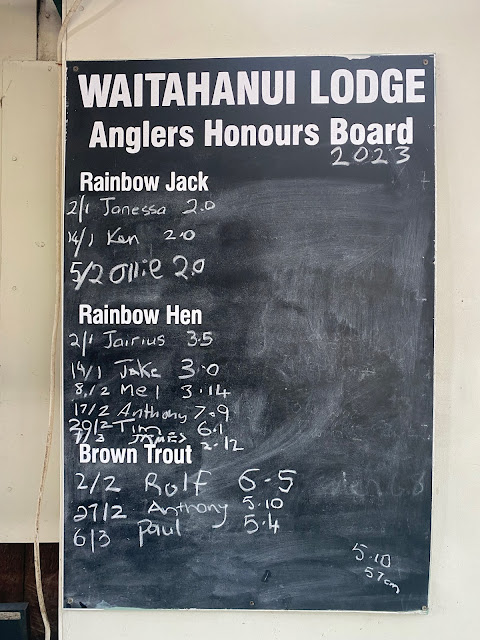 WAITAHANUI LODGE
Anglers Honours Board
2023
Rainbow Jack
2/1 Janessa 2.0
14/1 Ken 2.0
5/2 Ollie 2.0
Rainbow Hen
2/1 Jairius 3.5
14/1 Jake 3.0
8/2 Mel 3.14
17/2 Anthony 7.9
29/2 Tim 6.1
7/3 JAMES 2.12
Brown Trout
2/2 Rolf 6.5
27/2 Anthony 5.10
6/3 Paul 5.4
5.10
57cm